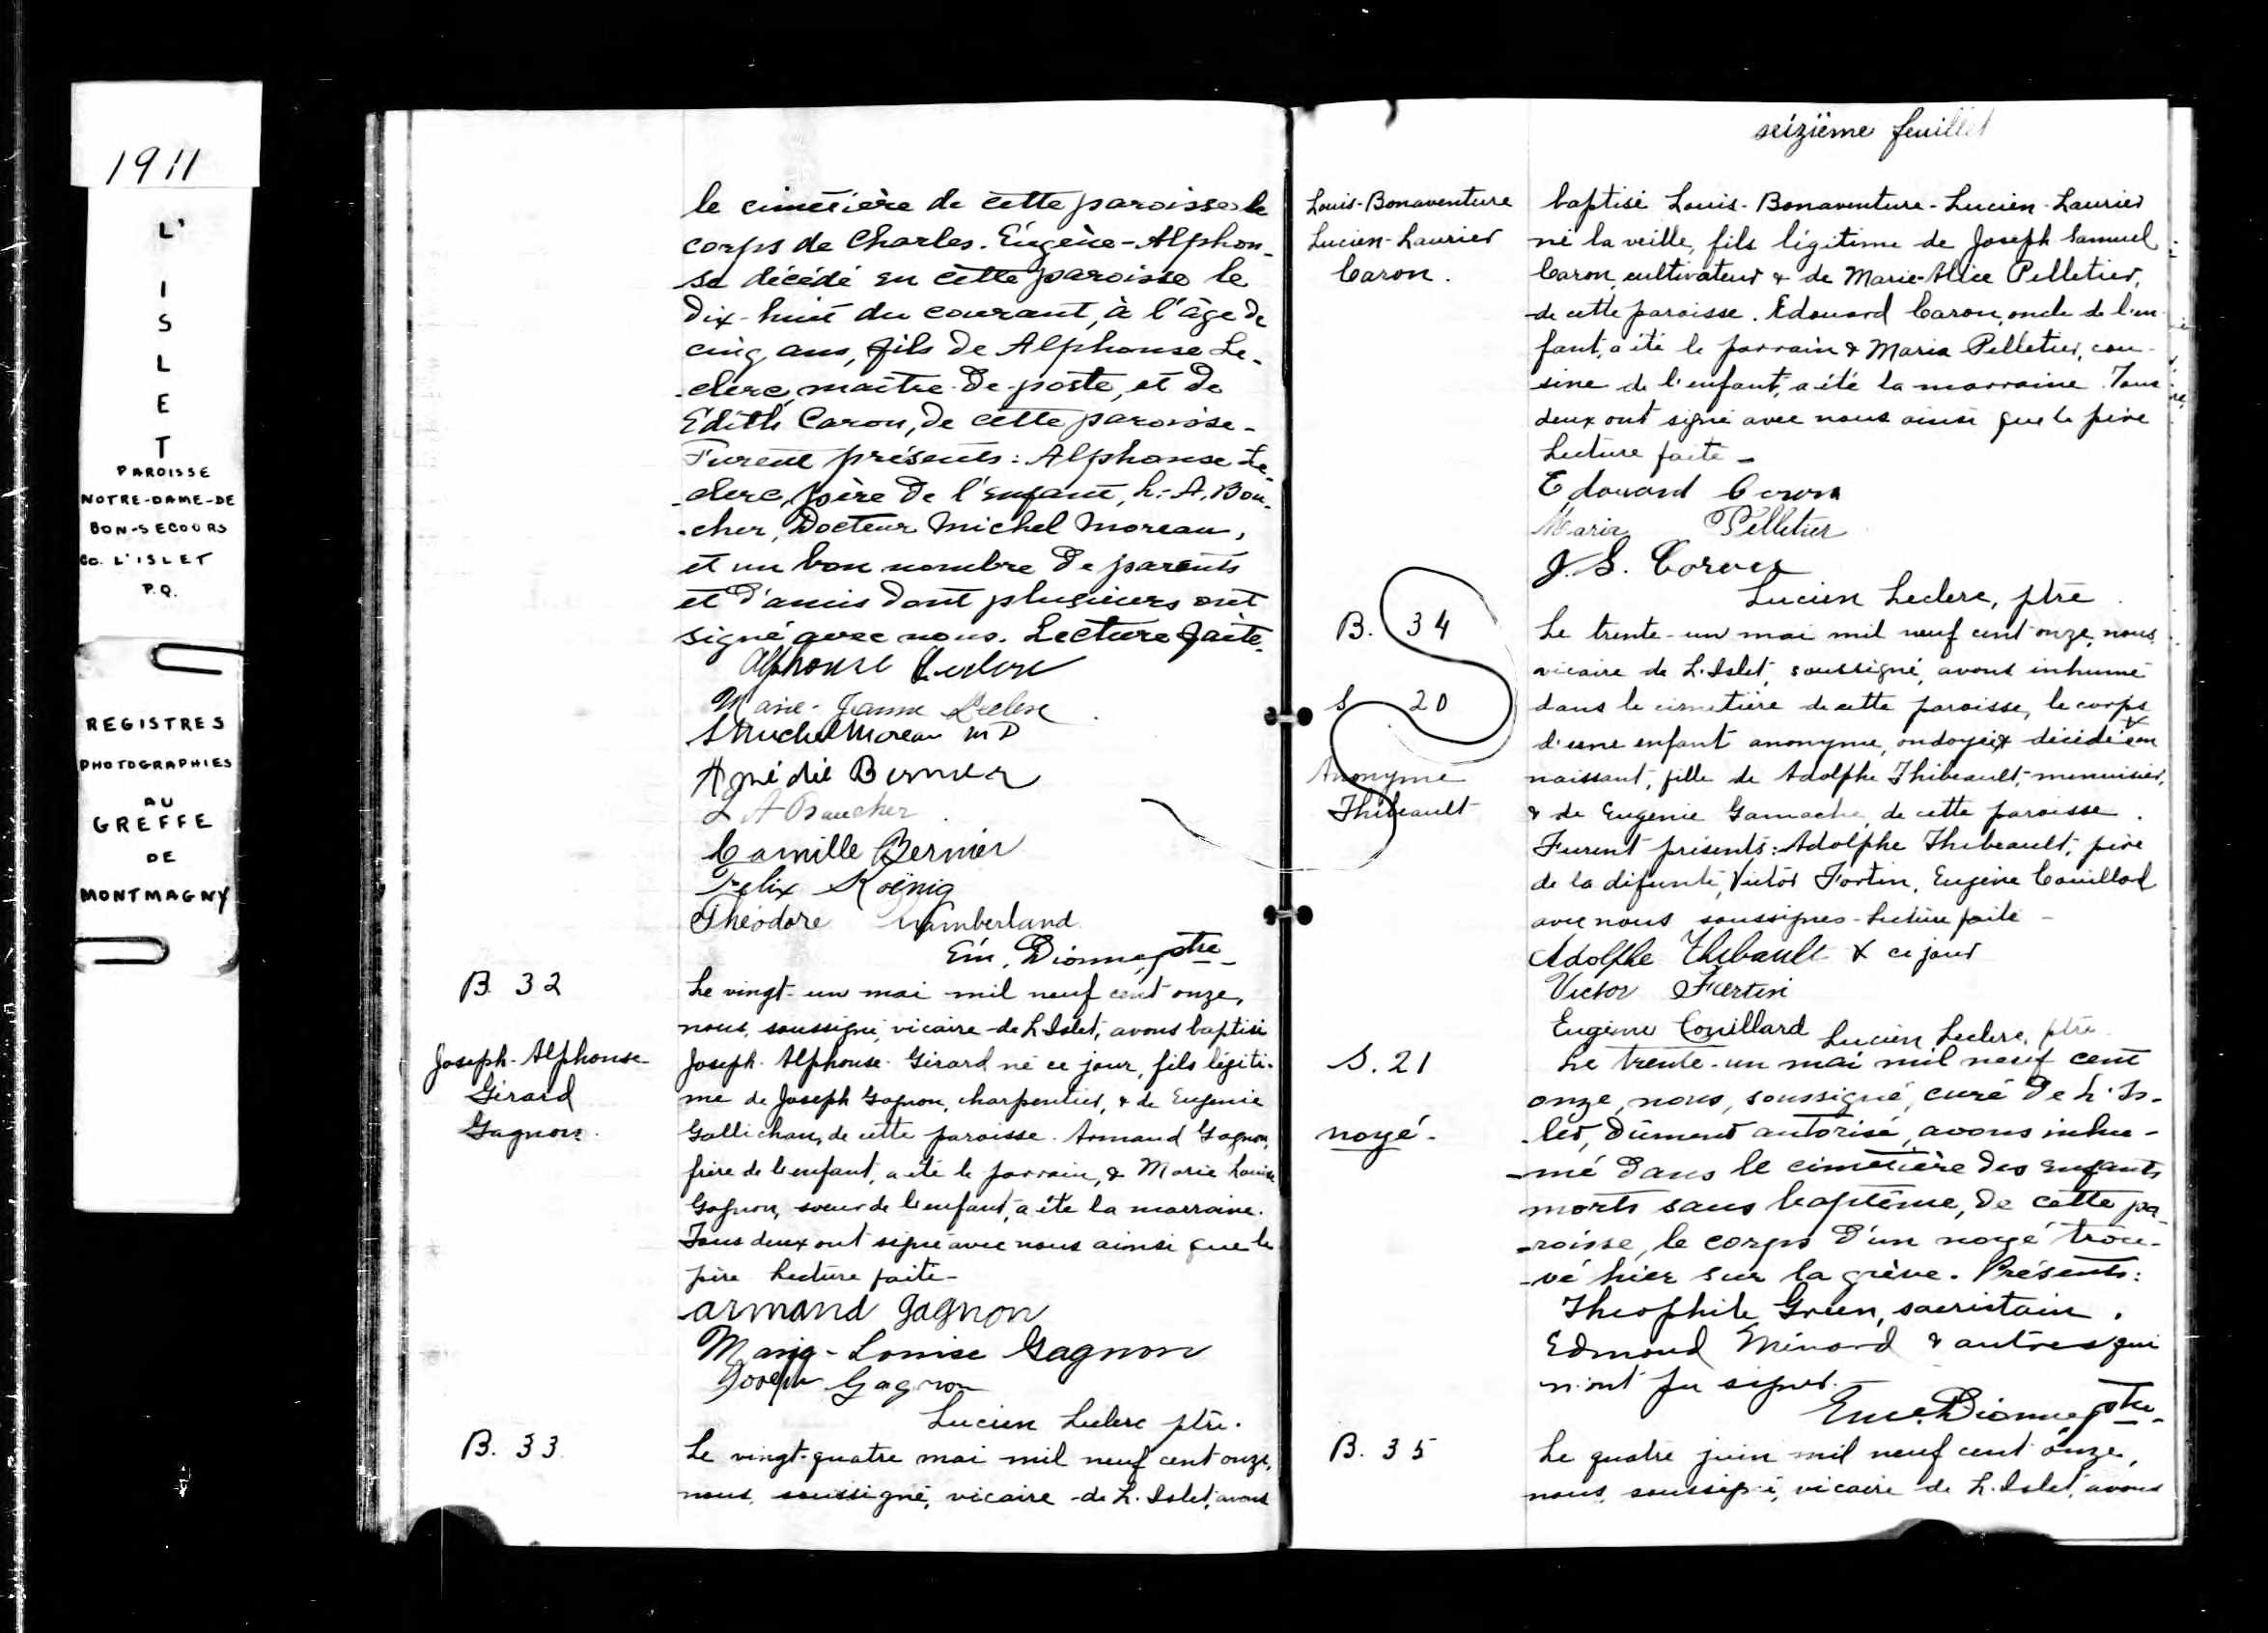 1911
L'
I
S
L
E
T
PAROISSE
NOTRE-DAME-DE
BON-SECOURS
Co. L'ISLET
P.Q.
REGISTRES
PHOTOGRAPHIES
AU
GREFFE
DE
MONTMAGNY
le cimetière de cette paroisse le
corps de Charles-Eugène-Alphon-
se décédé en cette paroisse le
dix-huit du courant, à l'âge de
cinq ans, fils de Alphonse Le-
clerc, maître-de-poste, et de
Edith Caron, de cette paroisse-
Furent présents: Alphonse Le-
clerc, père de l'enfant, L.-A. Bou-
cher, Docteur Michel Moreau,
et un bon nombre de parents
et d'amis dont plusieurs ont
signé avec nous. Lecture faite.
Alphonse Leclerc
Marie-Jeanne Leclerc
Michel Moreau M D
Amédée Bernier
L A Boucher
Camille Bernier
Felix Koënig
Théodore Lamberland
Em. Dionne, ptre
B. 32
Joseph-Alphonse-
Girard
Gagnon.
Le vingt-un mai mil neuf cent onze,
nous, soussigné, vicaire de L'Islet, avons baptisé
Joseph-Alphonse-Girard né ce jour, fils légiti-
me de Joseph Gagnon, charpentier, & de Eugénie
Gallichan, de cette paroisse. Armand Gagnon,
frère de l'enfant, a été le parrain, & Marie Louise
Gagnon, soeur de l'enfant, a été la marraine.
Tous deux ont signé avec nous ainsi que le
père Lecture faite-
Armand Gagnon
Marie-Louise Gagnon
Joseph Gagnon
Lucien Leclerc ptre.
B. 33
Le vingt-quatre mai mil neuf cent onze,
nous, soussigné, vicaire de L'Islet, avons
seizième feuillet
Louis-Bonaventure
Lucien-Laurier
Caron.
baptisé Louis-Bonaventure-Lucien-Laurier
né la veille, fils légitime de Joseph Samuel
Caron, cultivateur & de Marie-Alice Pelletier,
de cette paroisse. Edouard Caron, oncle de l'en
fant, a été le parrain & Maria Pelletier, cou-
sine de l'enfant, a été la marraine. Tous
deux ont signé avec nous ainsi que le père
Lecture faite-
Edouard Caron
Maria Pelletier
J. S. Caron
Lucien Leclerc, ptre
B. 34
S 20
Anonyme
Thibeault
Le trente-un mai mil neuf cent onze, nous,
vicaire de L'Islet, soussigné, avons inhumé
dans le cimetière de cette paroisse, le corps
d'une enfant anonyme, ondoyée & décédée en
naissant, fille de Adolphe Thibeault, menuisier,
& de Eugénie Gamache, de cette paroisse.
Furent présents: Adolphe Thibeault, père
de la défunte, Victor Fortin, Eugène Couillard
avec nous soussignés-Lecture faite-
Adolphe Thibault x ce jour
Victor Fortin
Eugène Couillard
Lucien Leclerc, ptre
S. 21
noyé-
Le trente-un mai mil neuf cent
onze, nous, soussigné, curé de L'Is-
let, dûment autorisé, avons inhu-
mé dans le cimetière des enfants
morts sans baptême, de cette pa-
roisse, le corps d'un noyé trou-
vé hier sur la grève. Présents:
Théophile Green, sacristain,
Edmond Ménard & autres qui
n'ont pu signer.
Em. Dionne, ptre-
B. 35
Le quatre juin mil neuf cent onze,
nous, soussigné, vicaire de L'Islet, avons